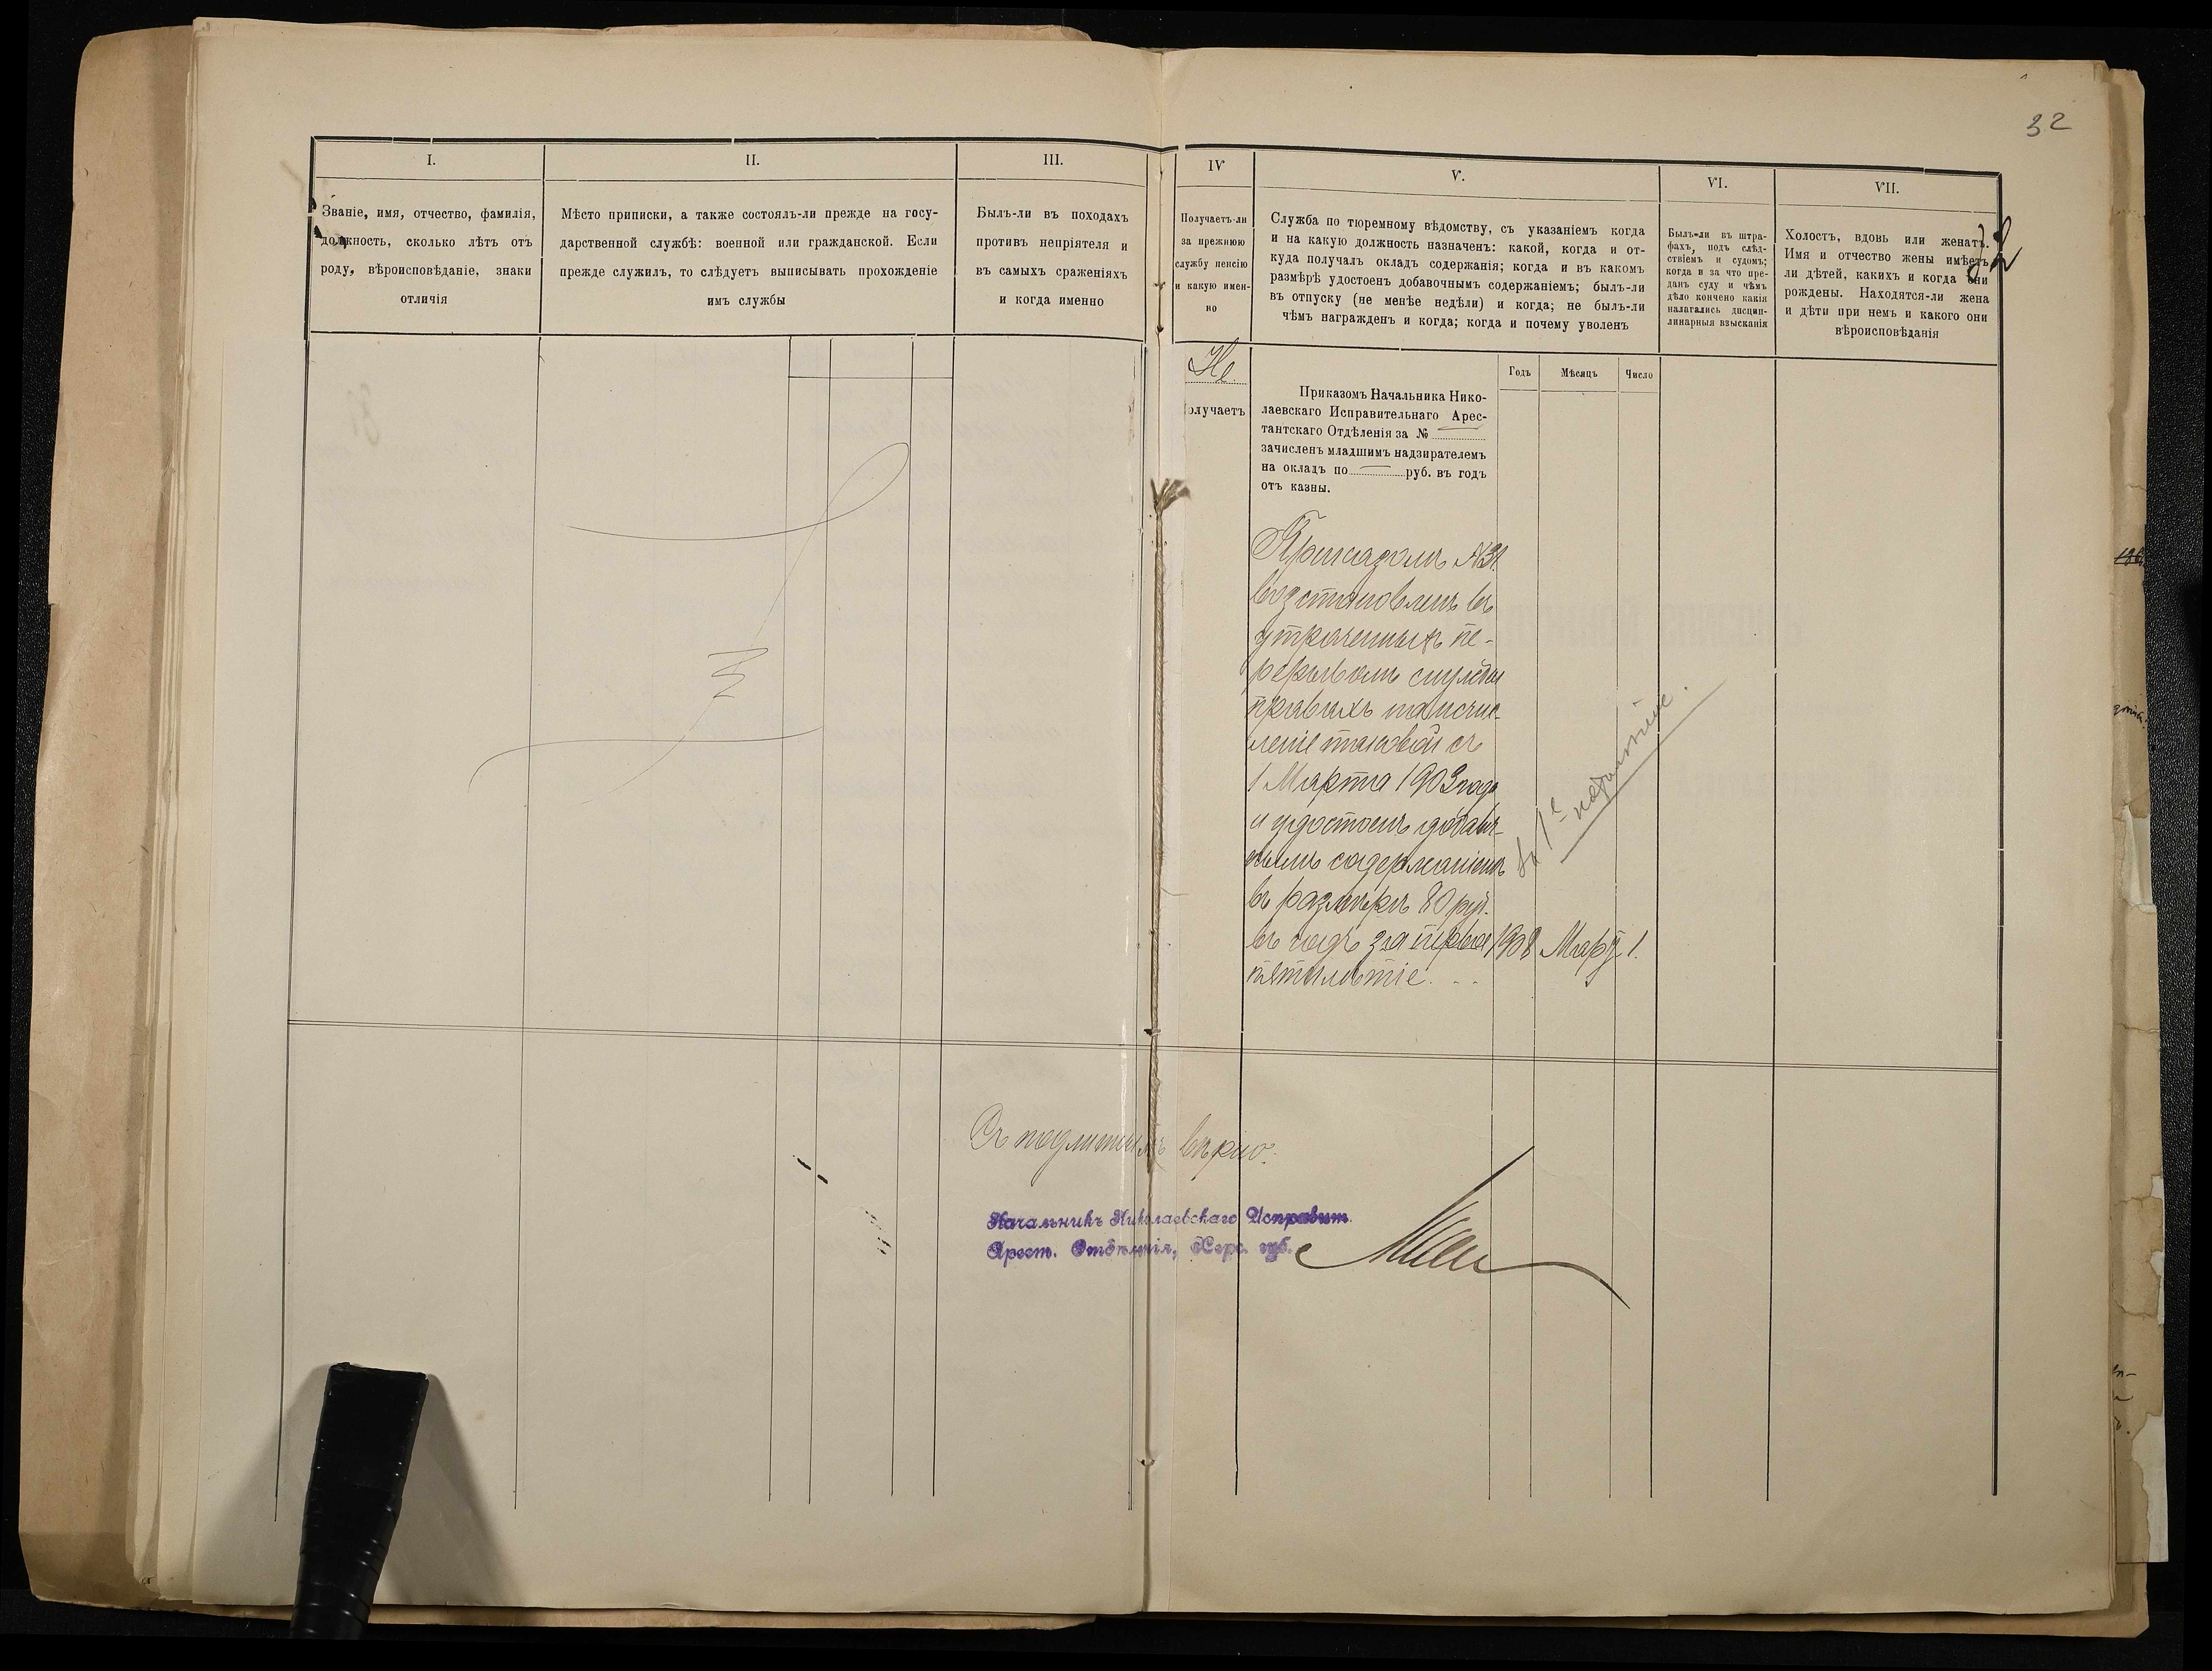 32
I.
Званіе, имя, отчество, фамилія,
должность, сколько лѣтъ отъ
роду, вѣроисповѣданіе, знаки
отличія
II.
Мѣсто приписки, а также состоялъ-ли прежде на госу-
дарственной службѣ: военной или гражданской. Если
прежде служилъ, то слѣдуетъ выписывать прохожденіе
имъ службы
III.
Былъ-ли въ походахъ
противъ непріятеля и
въ самыхъ сраженіяхъ
и когда именно
IV
Получаетъ-ли
за прежнюю
службу пенсію
и какую имен-
но
V.
Служба по тюремному вѣдомству, съ указаніемъ когда
и на какую должность назначенъ: какой, когда и от-
куда получалъ окладъ содержанія; когда и въ какомъ
размѣрѣ удостоенъ добавочнымъ содержаніемъ; былъ-ли
въ отпуску (не менѣе недѣли) и когда; не былъ-ли
чѣмъ награжденъ и когда; когда и почему уволенъ
VI.
Былъ-ли въ штра-
фахъ, подъ слѣд-
ствіемъ и судомъ;
когда и за что пре-
данъ суду и чѣмъ
дѣло кончено какія
налагались дисцип-
линарныя взысканія
VII.
Холостъ, вдовъ или женатъ.
Имя и отчество жены имѣетъ-
ли дѣтей, какихъ и когда они
рождены. Находятся-ли жена
и дѣти при немъ и какого они
вѣроисповѣданія
Не
олучаетъ
Годъ Мѣсяцъ Число
Приказомъ Начальника Нико-
лаевскаго Исправительнаго Арес-
тантскаго Отдѣленія за №
зачисленъ младшимъ надзирателемъ
на окладъ по руб. въ годъ
отъ казны.
Приказомъ №31
возстановленъ въ
утраченныхъ пе-
рерывомъ службы
правахъ на исчис-
леніе таковой съ
1 Марта 1903 года
и удостоенъ добавоч-
нымъ содержаніемъ
въ размѣрѣ 80 руб.
въ годъ за первое 1908 Марта 1.
пятилѣтіе.
за 1е пятилѣтіе.
Съ подлиннымъ вѣрно:
Начальникъ Николаевскаго Исправит.
Арест. Отдѣленія, Херс. губ.